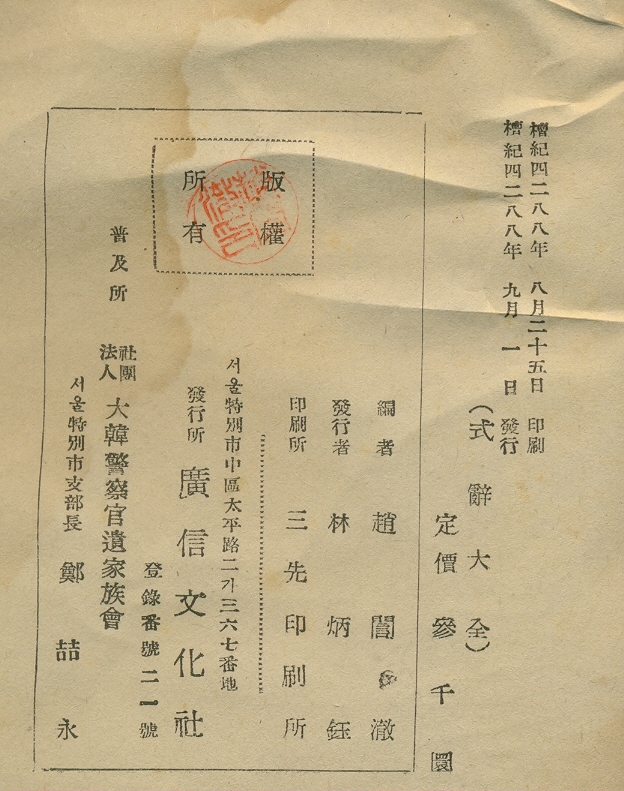 檀紀四二八八年 八月二十五日 印刷
檀紀四二八八年 九月 一 日 發行
(式辭大全)
定價 參千圜
編者 趙誾澈
發行者 林炳鈺
印刷所 三先印刷所
版權
所有
서울特別市中區太平路二가三六七番地
發行所 廣信文化社
登錄番號二一號
普及所
社團
法人 大韓警察官遺家族會
서울特別市支部長 鄭喆永